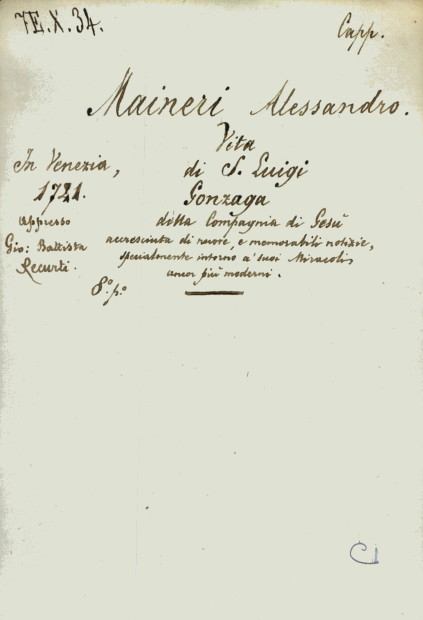 7E.X.34.
Capp.
Maineri Alessandro.
Vita
In Venezia,
di S. Luigi
1721.
Gonzaga
appresso
della Compagnia di Gesù
Gio: Battista
accresciuta di nuove, e memorabili notizie,
Recurti.
specialmente intorno a' suoi Miracoli,
ancor più moderni.
8.º p.º
C1